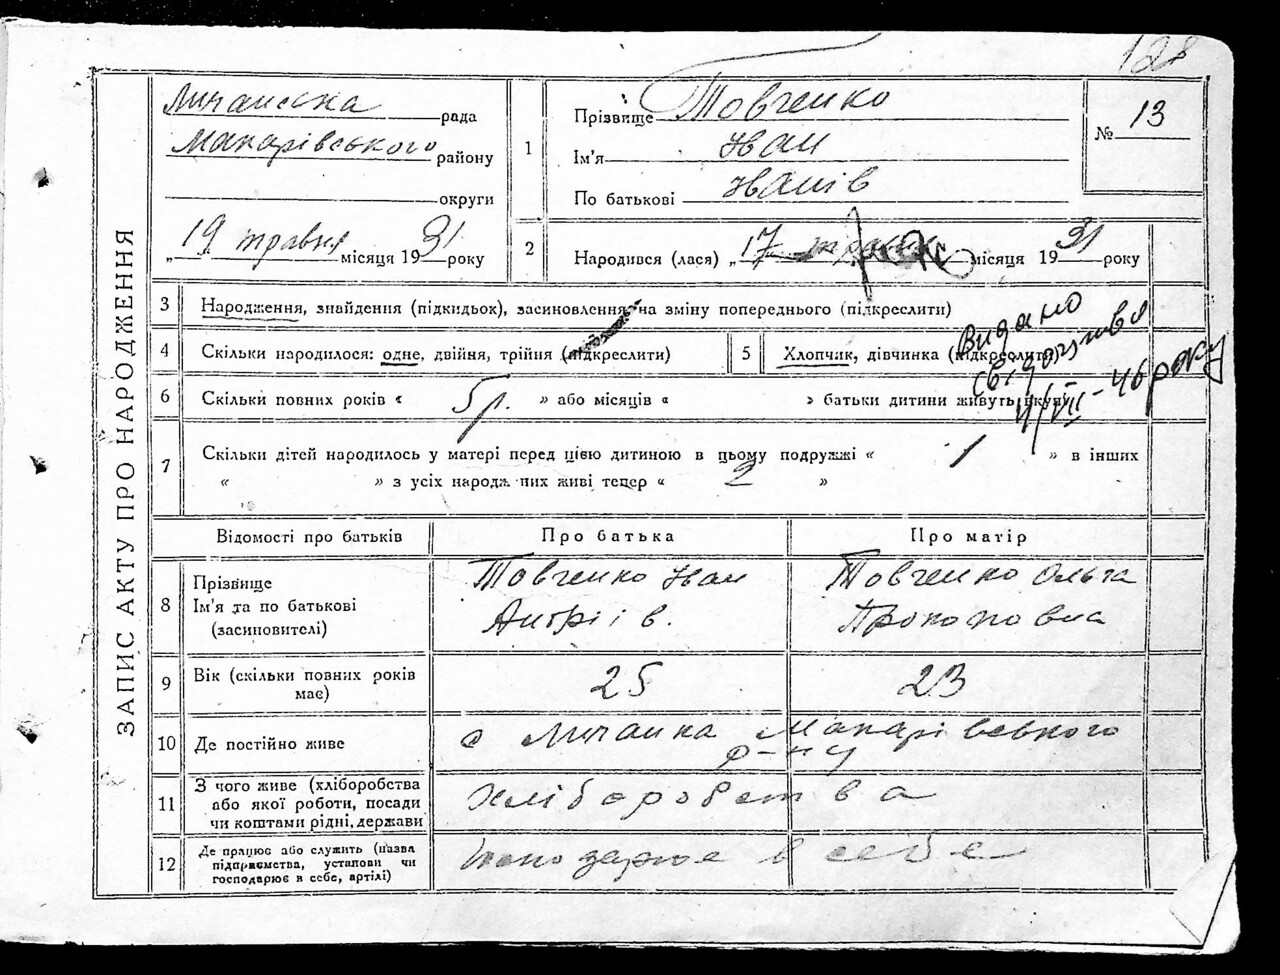 128
Личанська рада
Макарівського району
округи
„ 19 травня місяця 1931 року
1
Прізвище Товченко
Ім'я Іван
По батькові Іванів
№ 13
2
Народився (лася) „ 17 місяця 1931 року
ЗАПИС АКТУ ПРО НАРОДЖЕННЯ
3 Народження, знайдення (підкидьок), засиновлення, на зміну попереднього (підкреслити)
4 Скільки народилося: одне, двійня, трійня (підкреслити)
5 Хлопчик, дівчинка (підкреслити)
Видано
VII-46 року
6 Скільки повних років « 5 р. » або місяців « » батьки дитини живуть вкупі
7 Скільки дітей народилось у матері перед цією дитиною в цьому подружжі « 1 » в інших
« » з усіх народж них живі тепер « 2 »
Відомості про батьків Про батька Про матір
8 Прізвище
Ім'я та по батькові
(засиновителі)
Товченко Іван
Андріів.
Товченко Ольга
Прокоповна
9 Вік (скільки повних років
має)
25 23
10 Де постійно живе с Личанка Макарівського
р-ну
11 З чого живе (хліборобства
або якої роботи, посади
чи коштами рідні, держави
Хліборобства
12 Де працює або служить (назва
підприємства, установи чи
господарює в себе, артілі)
в себе